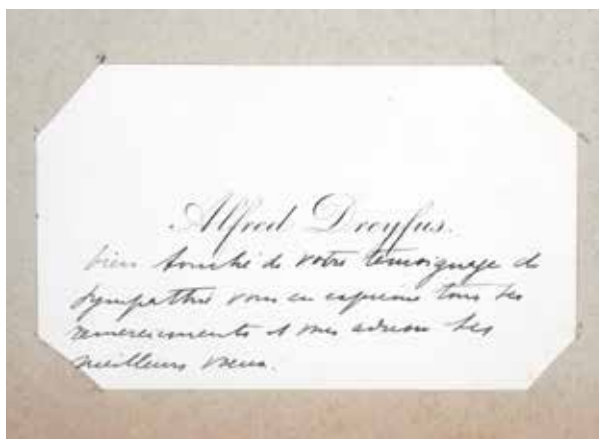 Alfred Dreyfus.
bien touché de votre témoignage de
sympathie vous en exprime tous ses
remerciements et vous adresse ses
meilleurs vœux.